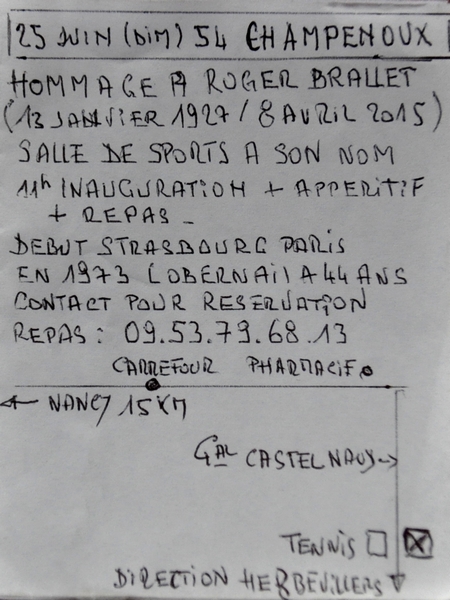 25 JUIN (DIM) 54 CHAMPENOUX
HOMMAGE A ROGER BRALLET
(13 JANVIER 1927 / 8 AVRIL 2015)
SALLE DE SPORTS A SON NOM
11h INAUGURATION + APPERITIF
+ REPAS -
DEBUT STRASBOURG PARIS
EN 1973 (OBERNAI) A 44 ANS
CONTACT POUR RESERVATION
REPAS : 09.53.79.68.13
CARREFOUR PHARMACIE
← NANCY 15 KM
Gal CASTELNAUX →
TENNIS
DIRECTION HERBEVILLERS